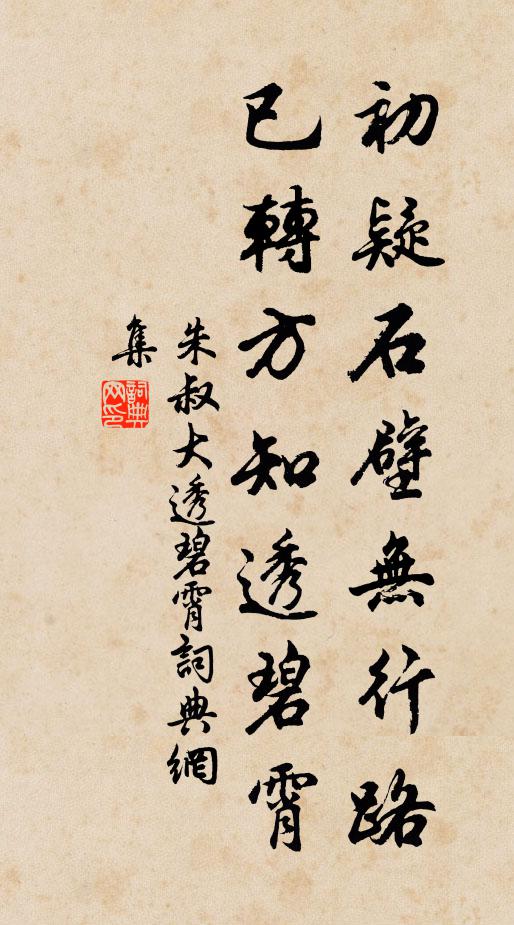 初疑石壁無行路
已轉方知透碧霄
朱叔大透碧霄詞典網
集
詞典
网印